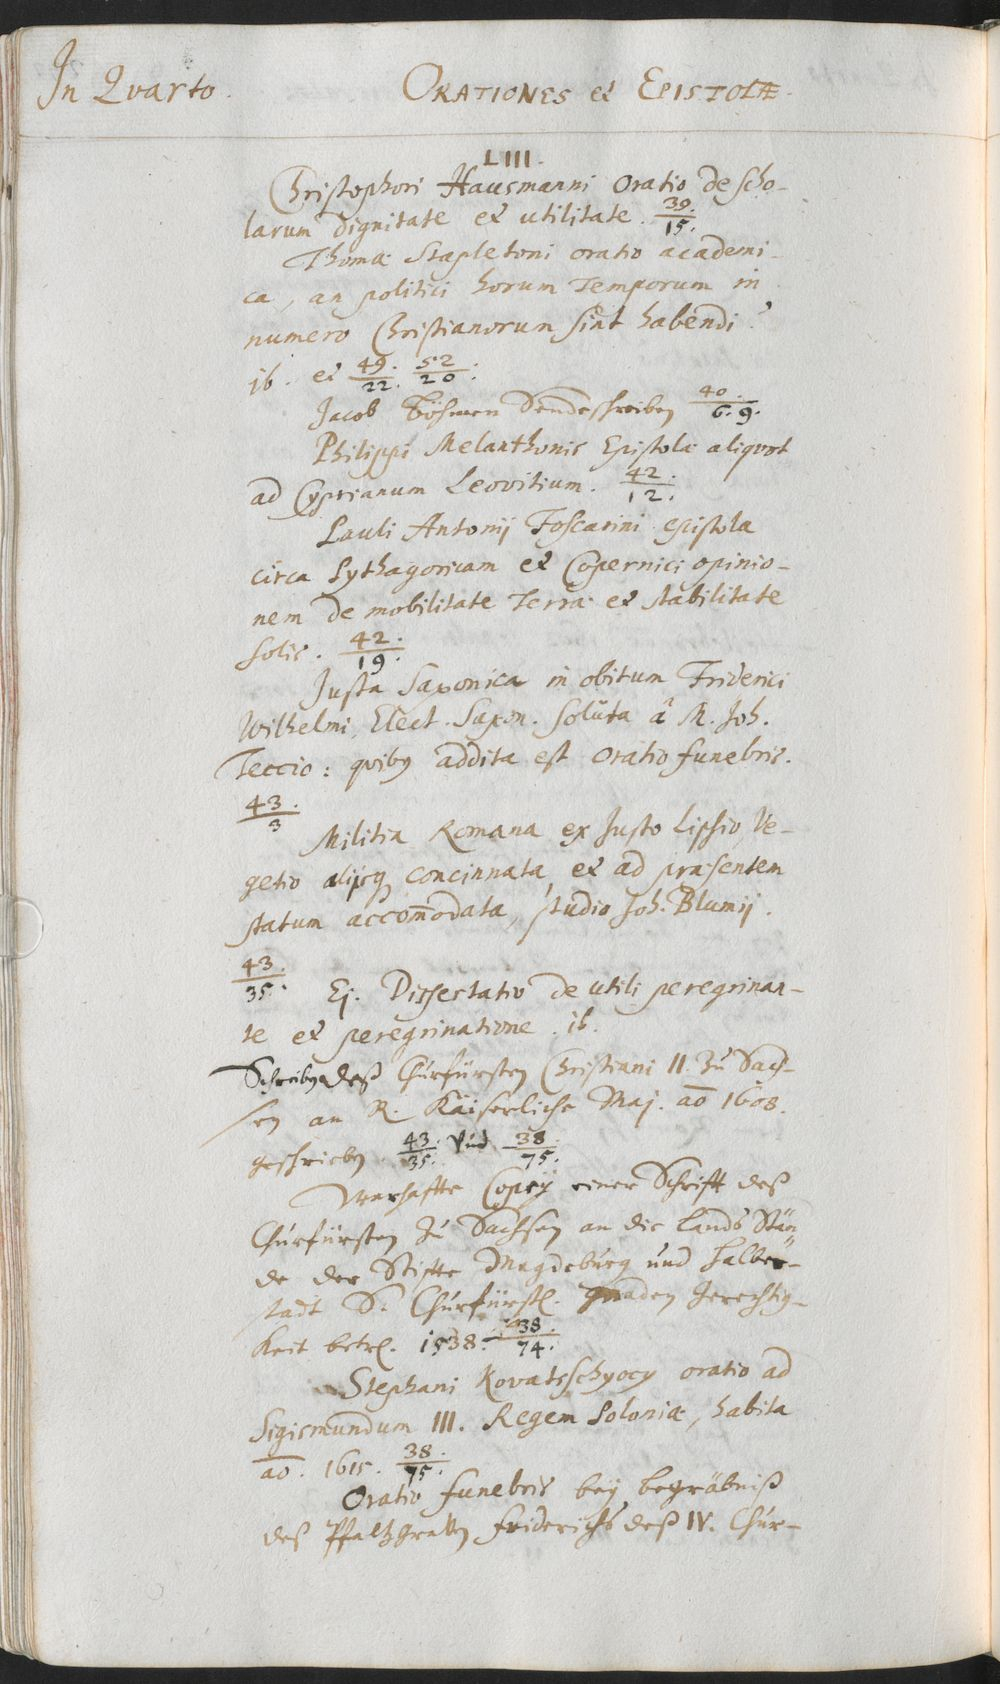 In Qvarto.
ORATIONES et EPISTOLÆ.
LIII.
Christophori Hausmanni Oratio de scho-
larum dignitate et utilitate. 39./15.
Thomæ Stapletoni oratio academi-
ca, an politici horum Temporum in
numero Christianorum sint habendi?
ib. et 49./22. 52./20.
Jacob Böhmen Sendeschreiben 40./6.9.
Philippi Melanthonis Epistolæ aliqvot
ad Cyprianum Leovitium. 42./12.
Pauli Antonij Foscarini epistola
circa Pythagoricam et Copernici opinio-
nem de mobilitate Terræ et stabilitate
solis. 42./19.
Justa Saxonica in obitum Friderici
Wilhelmi, Elect. Saxon. solúta â M. Joh.
Teccio: qvibq addita est Oratio funebris.
43./3
Militia Romana ex Justo Lipsio, Ve-
getio alijsq concinnata, et ad præsentem
statum accom̄odata, studio Joh. Blumij.
43./35.
Ej. Dissertatio de utili peregrinan-
te et peregrinatione. ib.
Schreiben deß Churfürsten Christiani II. zu Sach-
sen an R. Käiserliche Maj. aō 1608.
geschrieben. 43./35. Vnd 38./75.
Warhaffte Copey einer Schrifft deß
Churfürsten zu Sachsen an die Lands Stän
de der Stiffte Magdeburg und Halber-
stadt S. Churfürstl. Gnaden Gerechtig-
keit betrl. 1538. 38./74.
Stephani Kovatsschyocy oratio ad
Sigismundum III. Regem Poloniæ, habita
aō. 1615. 38./75.
Oratio funebris bey begräbniß
deß Pfaltzgraven Friderichs deß IV. Chur-